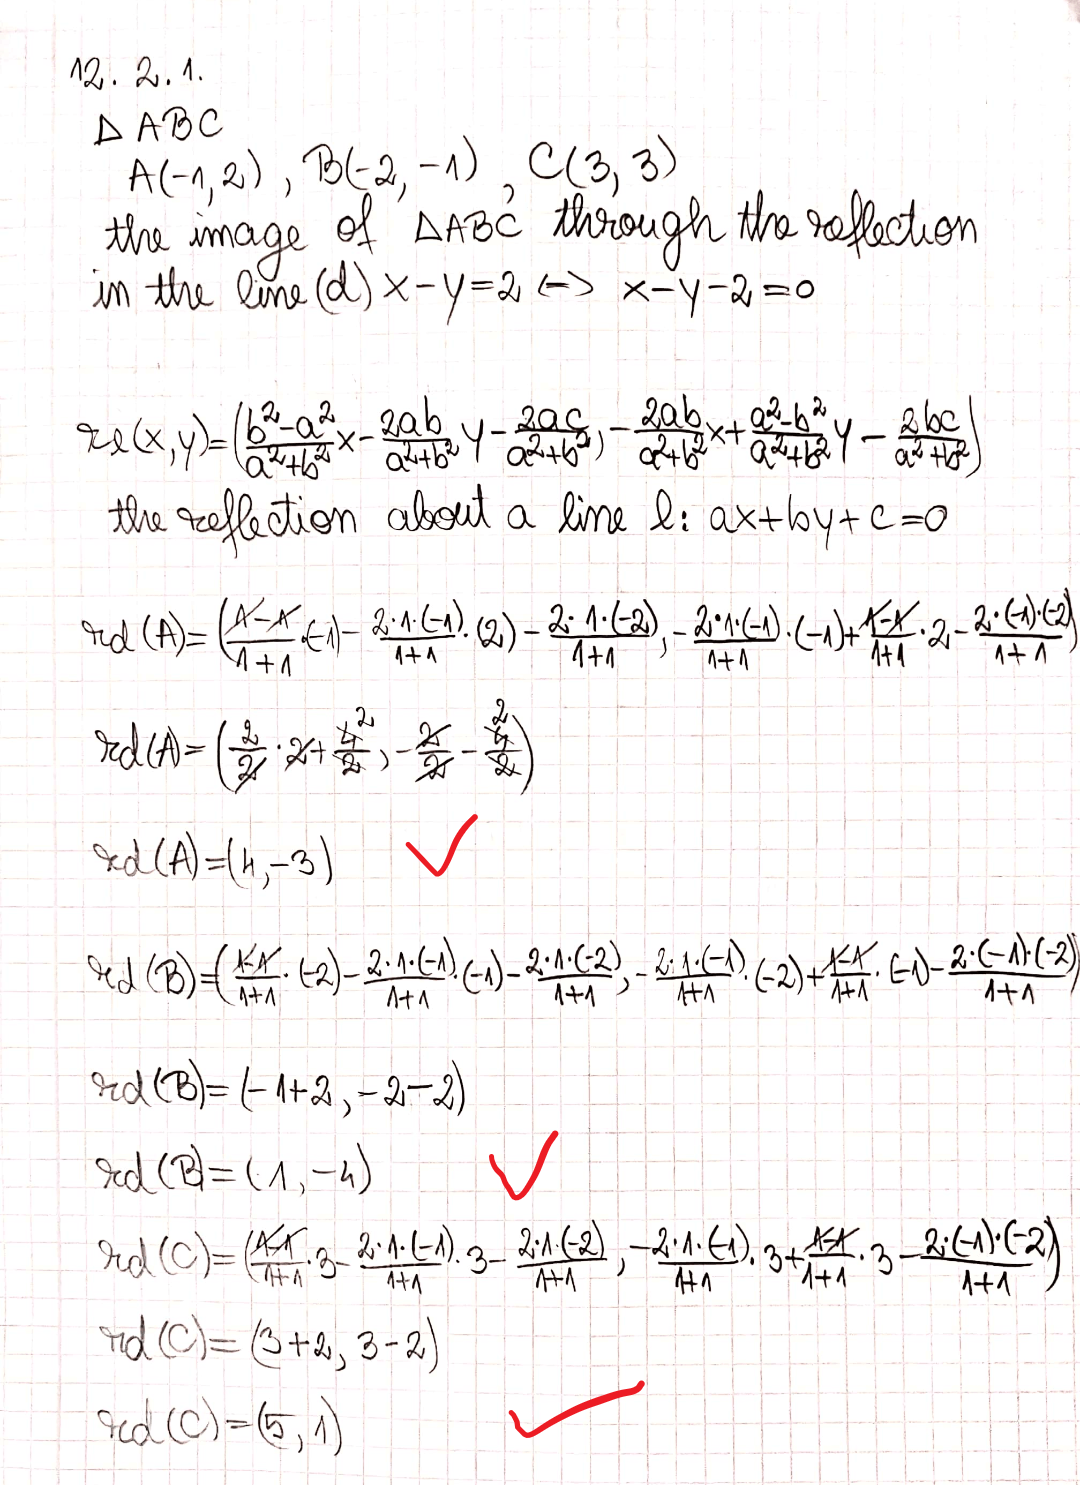 12. 2. 1.
Δ ABC
A(-1,2), B(-2,-1), C(3,3)
the image of ΔABC through the reflection
in the line (d) x-y=2 <-> x-y-2=0
re(x,y)=(\frac{b²-a²}{a²+b²}x-\frac{2ab}{a²+b²}y-\frac{2ac}{a²+b²}, -\frac{2ab}{a²+b²}x+\frac{a²-b²}{a²+b²}y-\frac{2bc}{a²+b²})
the reflection about a line l: ax+by+c=0
rd(A)=(\frac{1-1}{1+1}·(-1)-\frac{2·1·(-1)}{1+1}·(2)-\frac{2·1·(-2)}{1+1}, -\frac{2·1·(-1)}{1+1}·(-1)+\frac{1-1}{1+1}·2-\frac{2·(-1)·(-2)}{1+1})
rd(A)=(\frac{2}{2}·2+\frac{4}{2}², -\frac{2}{2}-\frac{4}{2}²)
rd(A)=(4,-3) ✓
rd(B)=(\frac{1-1}{1+1}·(-2)-\frac{2·1·(-1)}{1+1}·(-1)-\frac{2·1·(-2)}{1+1}, -\frac{2·1·(-1)}{1+1}·(-2)+\frac{1-1}{1+1}·(-1)-\frac{2·(-1)·(-2)}{1+1})
rd(B)=(-1+2, -2-2)
rd(B)=(1,-4) ✓
rd(C)=(\frac{1-1}{1+1}·3-\frac{2·1·(-1)}{1+1}·3-\frac{2·1·(-2)}{1+1}, -\frac{2·1·(-1)}{1+1}·3+\frac{1-1}{1+1}·3-\frac{2·(-1)·(-2)}{1+1})
rd(C)=(3+2, 3-2)
rd(C)=(5,1) ✓